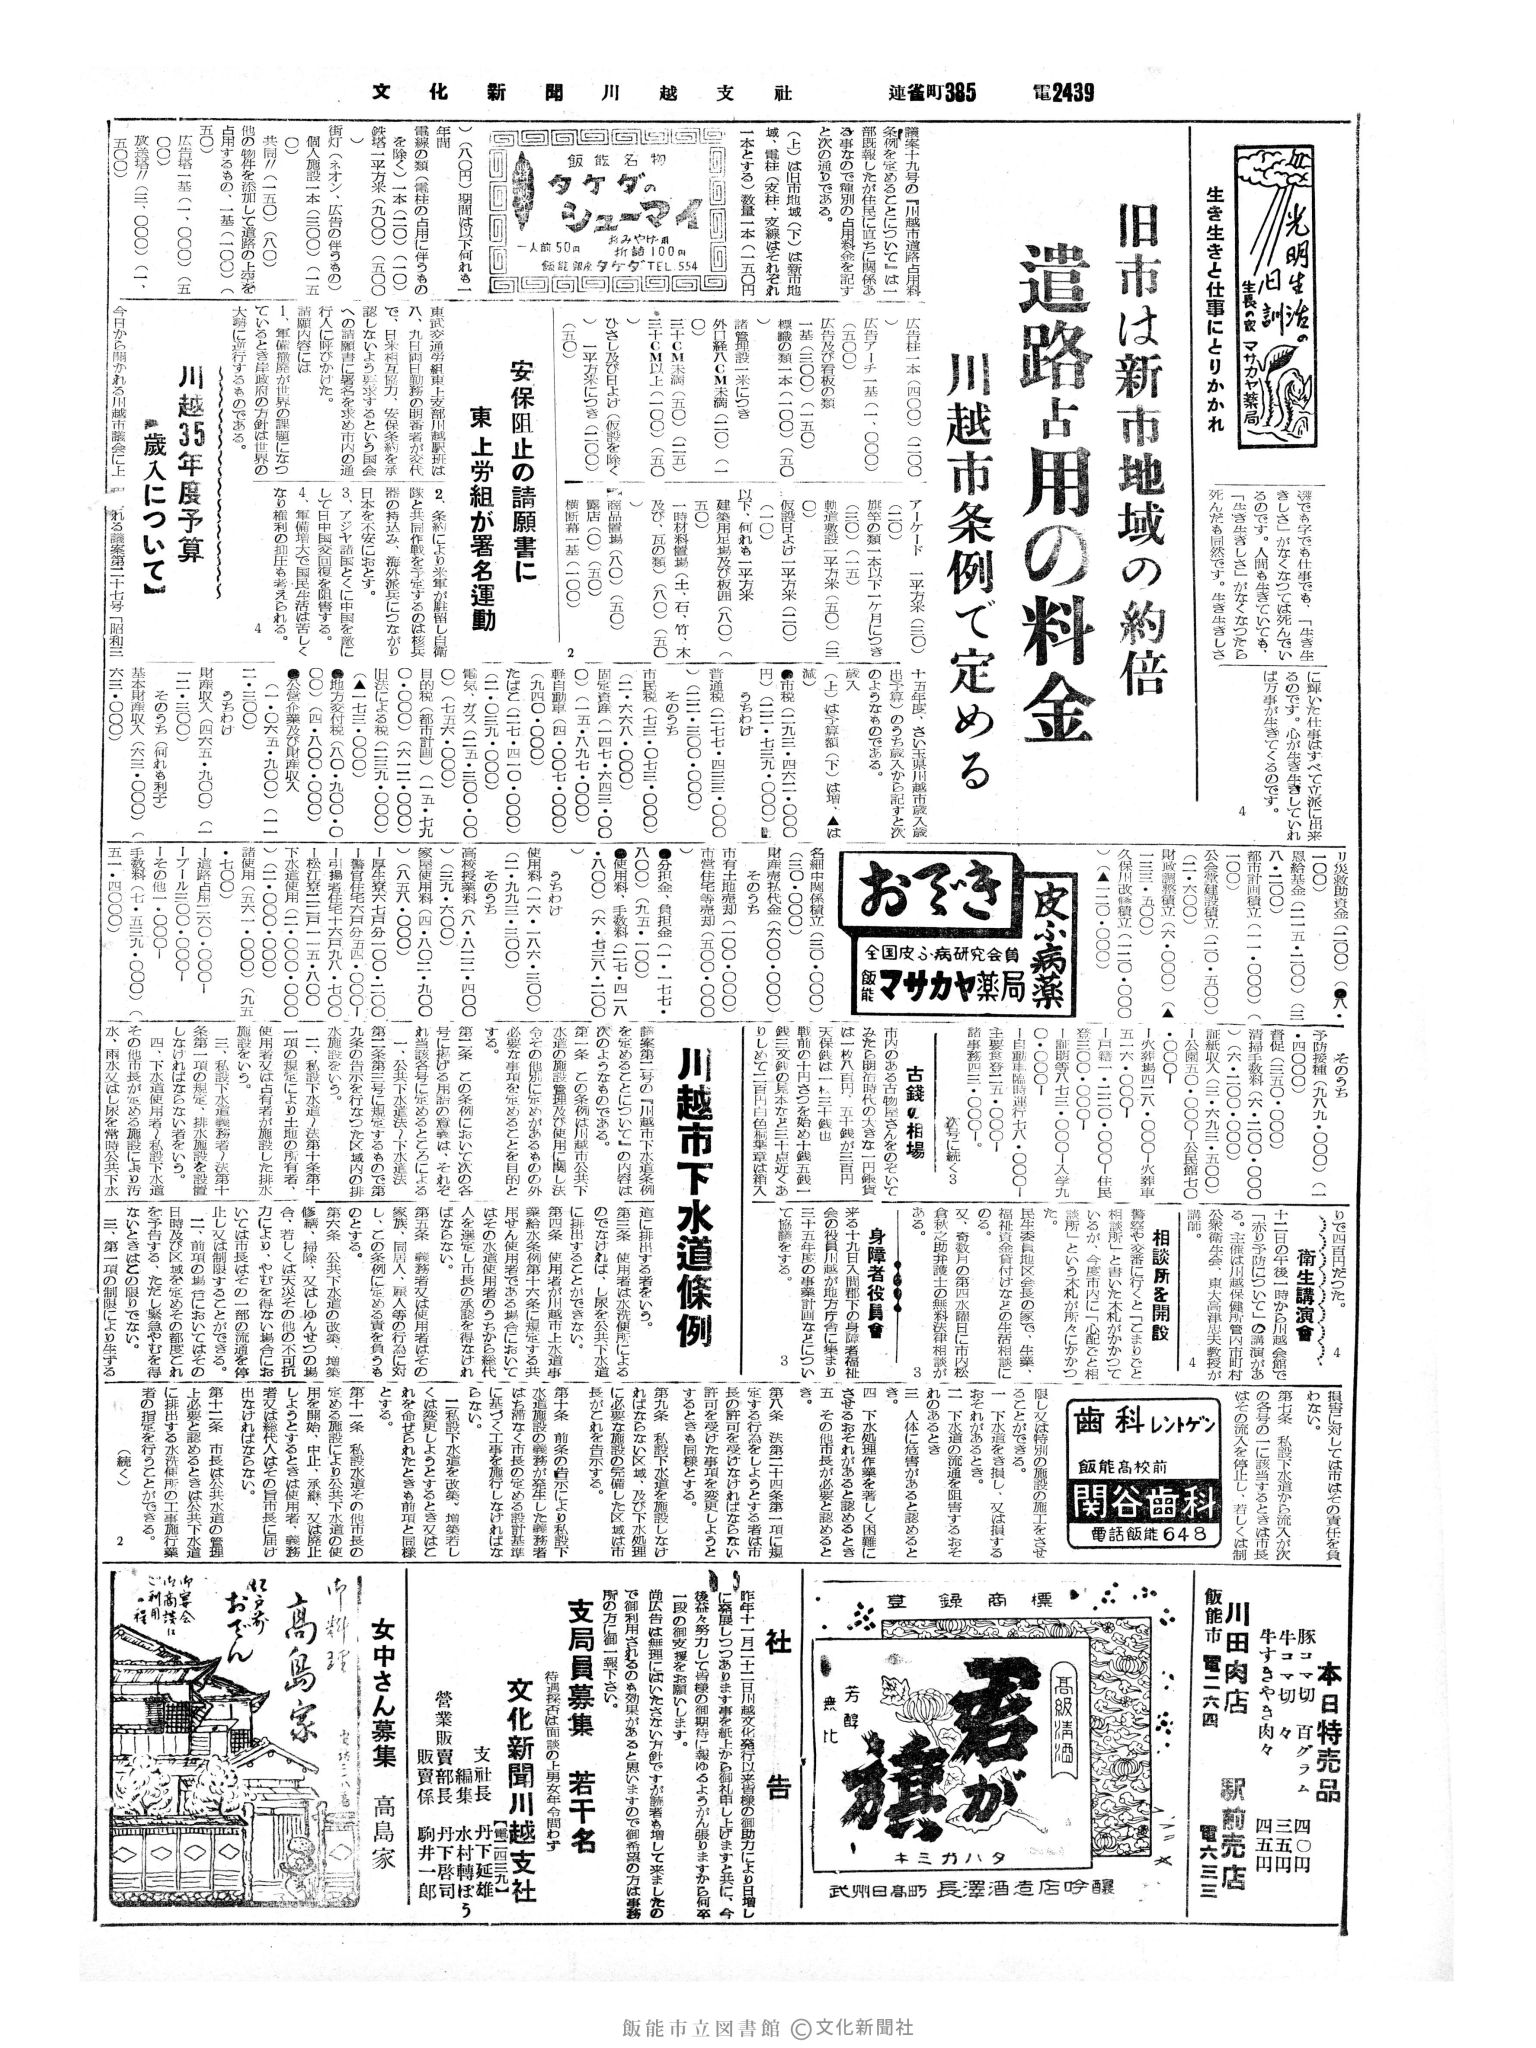 文化新聞川越支社 連雀町385 電2439
光明生活の日訓
生長の家 マサカヤ薬局
生き生きと仕事にとりかかれ
旧市は新市地域の約倍
道路占用の料金
川越市条例で定める
議案十九号の『川越市道路占用料
条例を定めることについて』は一
部既報したが住民に直ちに関係あ
る事なので種別の占用料金を記す
と次の通りである。
(上)は旧市地域(下)は新市地
域、電柱(支柱、支線はそれぞれ
一本とする)数量一本(一五〇円
飯能名物
タケダの
シューマイ
一人前50円
おみやげ用
折詰100円
飯能銀座タケダTEL.554
)(八〇円)期間は以下何れも一
年間
電線の類(電柱の占用に伴うもの
を除く)一本(二〇)(一〇)
鉄塔一平方米(九〇〇)(五〇〇
街灯(ネオン、広告の伴うもの)
個人施設一本(三〇〇)(一五
〇)
共同〃(一五〇)(八〇)
他の物件を添加して道路の上空を
占用するもの、一基(一〇〇)(
五〇)
広告塔一基(一、〇〇〇)(五
〇〇)
放送塔〃(三、〇〇〇)(一、
五〇〇)
広告柱一本(四〇〇)(二〇〇
広告アーチ一基(一、〇〇〇)
(五〇〇)
広告及び看板の類
一基(三〇〇)(一五〇)
標識の類一本(一〇〇)(五〇
)
諸管理設一米につき
外口経八CM未満(二〇)(一
〇)
三十CM未満(五〇)(二五)
三十CM以上(一〇〇)(五〇
)
ひさし及び日よけ(仮設を除く
)一平方米につき(一〇〇)
(五〇)
アーケード 一平方米(三〇)
(二〇)
旗竿の類一本以下一ケ月につき
(三〇)(一五)
軌道敷設一平方米(五〇)(三
〇)
仮設日よけ一平方米(二〇)
(一〇)
以下、何れも一平方米
建築用足場及び板囲(八〇)(
五〇)
一時材料置場(土、石、竹、木
及び、瓦の類)(八〇)(五〇
)
商品置場(八〇)(五〇)
露店(〇)(五〇)
横断幕一基(一〇〇)
2
安保阻止の請願書に
東上労組が署名運動
東武交通労組東上支部川越駅班は
八、九日両日勤務の明番者が交代
で、日米相互協力、安保条約を承
認しないよう要求するという国会
への請願書に署名を求め市内の通
行人に呼びかけた。
請願内容には
1、軍備撤廃が世界の課題になつ
ているとき岸政府の方針は世界の
大勢に逆行するものである。
2、条約により米軍が駐留し自衛
隊と共同作戦を予定するのは核兵
器の持込み、海外派兵につながり
日本を不安におとす。
3、アジヤ諸国とくに中国を敵に
して日中国交回復を阻害する。
4、軍備増大で国民生活は苦しく
なり権利の抑圧も考えられる。
4
川越35年度予算
歳入について】
今日から開かれる川越市議会に上
れる議案第二十七号「昭和三
十五年度、さい玉県川越市歳入歳
出予算」のうち歳入から記すと次
のようなものである。
(上)は予算額(下)は増、▲は
減)
歳入
●市税(二九三・四六二・〇〇〇
円)(二二・七三九・〇〇〇)
うちわけ
普通税(二七七・四三三・〇〇〇
)(二二・三〇〇・〇〇〇)
そのうち
市民税(七三・〇七三・〇〇〇)
(二・六六八・〇〇〇)
固定資産(一四七・六四三・〇〇
〇)(一五・八九七・〇〇〇)
軽自動車(四・〇〇七・〇〇〇)
(九四〇・〇〇〇)
たばこ(二七・四一〇・〇〇〇)
(二・〇三九・〇〇〇)
電気、ガス(二五・三〇〇・〇〇
〇)(七五六・〇〇〇)
目的税(都市計画)(一五・七九
〇・〇〇〇)(六一二・〇〇〇)
旧法による税(二三九・〇〇〇)
(▲一七三・〇〇〇)
●地方交付税(八〇・九〇〇・〇
〇〇)(四・八〇〇・〇〇〇)
●公営企業及び財産収入
(一・〇六五・九〇〇)(一一
二・三〇〇)
うちわけ
財産収入(四六五・九〇〇)(一
一二・三〇〇)
そのうち(何れも利子)
基本財産収入(六三・〇〇〇)(
六三・〇〇〇)
に輝いた仕事はすべて立派に出来
るのです。心が生き生きしていれ
ば万事が生きてくるのです。
4
リ災救助資金(二〇〇)(●八・
一〇〇)
恩給基金(二一五・二〇〇)(三
八・二〇〇)
都市計画積立(一一・〇〇〇)(
一〇〇)
公会堂建設積立(二〇・五〇〇)
(二・六〇〇)
財政調整積立(六・〇〇〇)(▲
一三三・五〇〇)
久保川改修積立(一二〇・〇〇〇
)(▲一二〇・〇〇〇)
おでき
皮ふ病薬
全国皮ふ病研究会員
飯能 マサカヤ薬局
名細中関係積立(三〇・〇〇〇)
(三〇・〇〇〇)
財産売払代金(六〇〇・〇〇〇)
そのうち
市有土地売却(一〇〇・〇〇〇)
市営住宅等売却(五〇〇・〇〇〇
)
●分担金、負担金(一・一七七・
八〇〇)(九五・一〇〇)
●使用料、手数料(二七・四一八
・八〇〇)(六・七三八・二〇〇
)
うちわけ
使用料(一六・一八六・三〇〇)
(二・九九三・三〇〇)
そのうち
高校授業料(八・八二二・四〇〇
)(三九・六〇〇)
家屋使用料(四・八〇二・九〇〇
)(八五八・〇〇〇)
ー厚生寮六七戸分一〇〇・二〇〇
ー警官住宅六戸分五四・〇〇〇ー
ー引揚者住宅十六戸九八・七〇〇
ー松江寮二三戸一一五・八〇〇
下水道使用(二・〇〇〇・〇〇〇
)(二・〇〇〇・〇〇〇)
諸使用(五六一・〇〇〇)(九五
・七〇〇)
ー道路占用二六〇・〇〇〇ー
ープール三〇〇・〇〇〇ー
ーその他一・〇〇〇ー
手数料(七・五三九・〇〇〇)(
五一・四〇〇〇)
そのうち
予防接種(九八九・〇〇〇)(一
・四〇〇〇)
督促(三五〇・〇〇〇)
清掃手数料(六・二〇〇・〇〇〇
)(六・二〇〇・〇〇〇)
証紙収入(三・六九三・五〇〇)
ー公園五〇・〇〇〇ー公民館七〇
・〇〇〇ー
ー火葬場四二八・〇〇〇ー火葬車
五一六・〇〇〇ー
ー戸籍一・二二〇・〇〇〇ー住民
登三〇〇・〇〇〇ー
ー証明等八七三・〇〇〇ー入学九
〇・〇〇〇ー
ー自動車臨時運行七八・〇〇〇ー
主要食登二五・〇〇〇ー
諸事務四三・〇〇〇ー。
次号に続く 3
古錢の相場
市内のある古物屋さんをのぞいて
みたら明治時代の大きな一円銀貨
は一枚八百円、五十銭が三百円
天保銭は一枚三十銭也
戦前の十円さつを始め十銭五銭一
銭三文銭の見本など三十点近くあ
りしめて二百円白色桐集章は箱入
りで四百円だつた。
4
川越市下水道條例
議案第二号の『川越市下水道条例
を定めることについて』の内容は
次のようなものである。
第一条 この条例は川越市公共下
水道の施設管理及び使用に関し法
令その他別に定めがあるものの外
必要な事項を定めることを目的と
する。
第二条 この条例において次の各
号に掲げる用語の意義は、それぞ
れ当該各号に定めるところによる
一、公共下水道法ー下水道法
第二条第三号に規定するもので第
九条の告示を行なつた区域内の排
水施設をいう。
二、私設下水道ー法第十条第十
一項の規定により土地の所有者、
使用者又は占有者が施設した排水
施設をいう。
三、私設下水道義務者ー法第十
条第一項の規定、排水施設を設置
しなければならない者をいう。
四、下水道使用者ー私設下水道
その他市長が定める施設により汚
水、雨水又はし尿を常時公共下水
道に排出する者をいう。
第三条 使用者は水洗便所による
のでなければ、し尿を公共下水道
に排出することができない。
第四条 使用者が川越市上水道事
業給水条例第十六条に規定する共
用せん使用者である場合において
はその水道使用者のうちから総代
人を選定し市長の承認を得なけれ
ばならない。
第五条 義務者又は使用者はその
家族、同居人、雇人等の行為に対
し、この条例に定める責を負うも
のとする。
第六条 公共下水道の改築、増築
修繕、掃除、又はしゆんせつの場
合、若しくは天災その他の不可抗
力により、やむを得ない場合にお
いては市長はその一部の流通を停
止し又は制限することができる。
二、前項の場合においてはその
日時及び区域を定めその都度これ
を予告する、ただし緊急やむを得
ないときはこの限りでない。
三、第一項の制限により生ずる
損害に対しては市はその責任を負
わない。
第七条 私設下水道から流入が次
の各号の一に該当するときは市長
はその流入を停止し、若しくは制
限し又は特別の施設の施工をさせ
ることができる。
一 下水道をき損し、又は損する
おそれがあるとき。
二 下水道の流通を阻害するおそ
れのあるとき
三 人体に危害があると認めると
き
四 下水処理作業を著しく困難に
させるおそれがあると認めるとき
五 その他市長が必要と認めると
き。
第八条 法第二十四条第一項に規
定する行為をしようとする者は市
長の許可を受けなければならない
許可を受けた事項を変更しようと
するときも同様とする。
第九条 私設下水道を施設しなけ
ればならない区域、及び下水処理
に必要な施設の完備した区域は市
長がこれを告示する。
第十条 前条の告示により私設下
水道施設の義務が発生した義務者
はち滞なく市長の定める設計基準
に基づく工事を施行しなければな
らない。
二私設下水道を改築、増築若し
くは変更しようとするとき又はこ
れを命ぜられたときも前項と同様
とする。
第十一条 私設水道その他市長の
定める施設により公共下水道の使
用を開始、中止、承継、又は廃止
しようとするときは使用者、義務
者又は総代人はその旨市長に届け
出なければならない。
第十二条 市長は公共水道の管理
上必要と認めるときは公共下水道
に排出する水洗便所の工事施行業
者の指定を行うことができる。
(続く)
2
衛生講演會
十二日の午後一時から川越会館で
「赤り予防について」の講演があ
る。主催は川越保健所管内市町村
公衆衛生会、東大高津忠夫教授が
講師。
4
相談所を開設
警察や交番に行くと「こまりごと
相談所」と書いた木札がかかつて
いるが、今度市内に「心配ごと相
談所」という木札が所々にかかつ
た。
民生委員地区会長の家で、生業、
福祉資金貸付けなどの生活相談に
のる。
又、奇数月の第四水曜日に市内松
倉秋之助弁護士の無料法律相談が
ある。
3
身障者役員會
来る十九日入間郡下の身障者福祉
会の役員川越が地方庁舎に集まり
三十五年度の事業計画などについ
て協議をする。
3
歯科レントゲン
飯能高校前
関谷歯科
電話飯能648
本日特売品
豚コマ切 百グラム 四〇円
牛コマ切 々 三五円
牛すきやき肉々 四五円
川田肉店 駅前売店
飯能市 電二六四 電六三三
標商録登
高級清酒
君が旗
芳醇無比
キミガカハタ
武州日高町 長澤酒造店吟醸
社告
昨年十一月二十二日川越文化発行以来皆様の御助力により日増し
に発展しつつあります事を紙上から御礼申し上げますと共に、今
後益々努力して皆様の御期待に報ゆるようがん張りますから何卒
一段の御支援をお願いします。
尚広告は無理にはいたさない方針ですが読者も増して来ましたの
で御利用されるのも効果があると思いますので御希望の方は事務
所の方に御一報下さい。
支局員募集 若干名
待遇採否は面談の上男女年令問わず
文化新聞川越支社
【電二四三九】
支社長 丹下延雄
編集 水村轉ぼう
営業販賣部長 丹下啓司
販賣係 駒井一郎
女中さん募集 高島家
御料理
高島家
江戸前
おでん
御宴会
御商談に
ご利用
の程
飯能市立図書館 ©文化新聞社